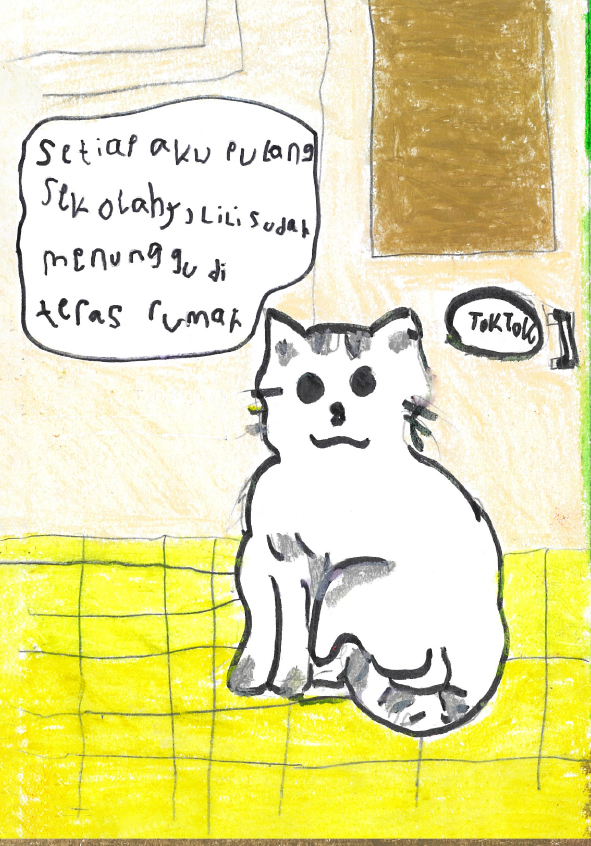 Setiap aku pulang
Sekolahy, LiLi sudah
menunggu di
teras rumah
TOKTOK